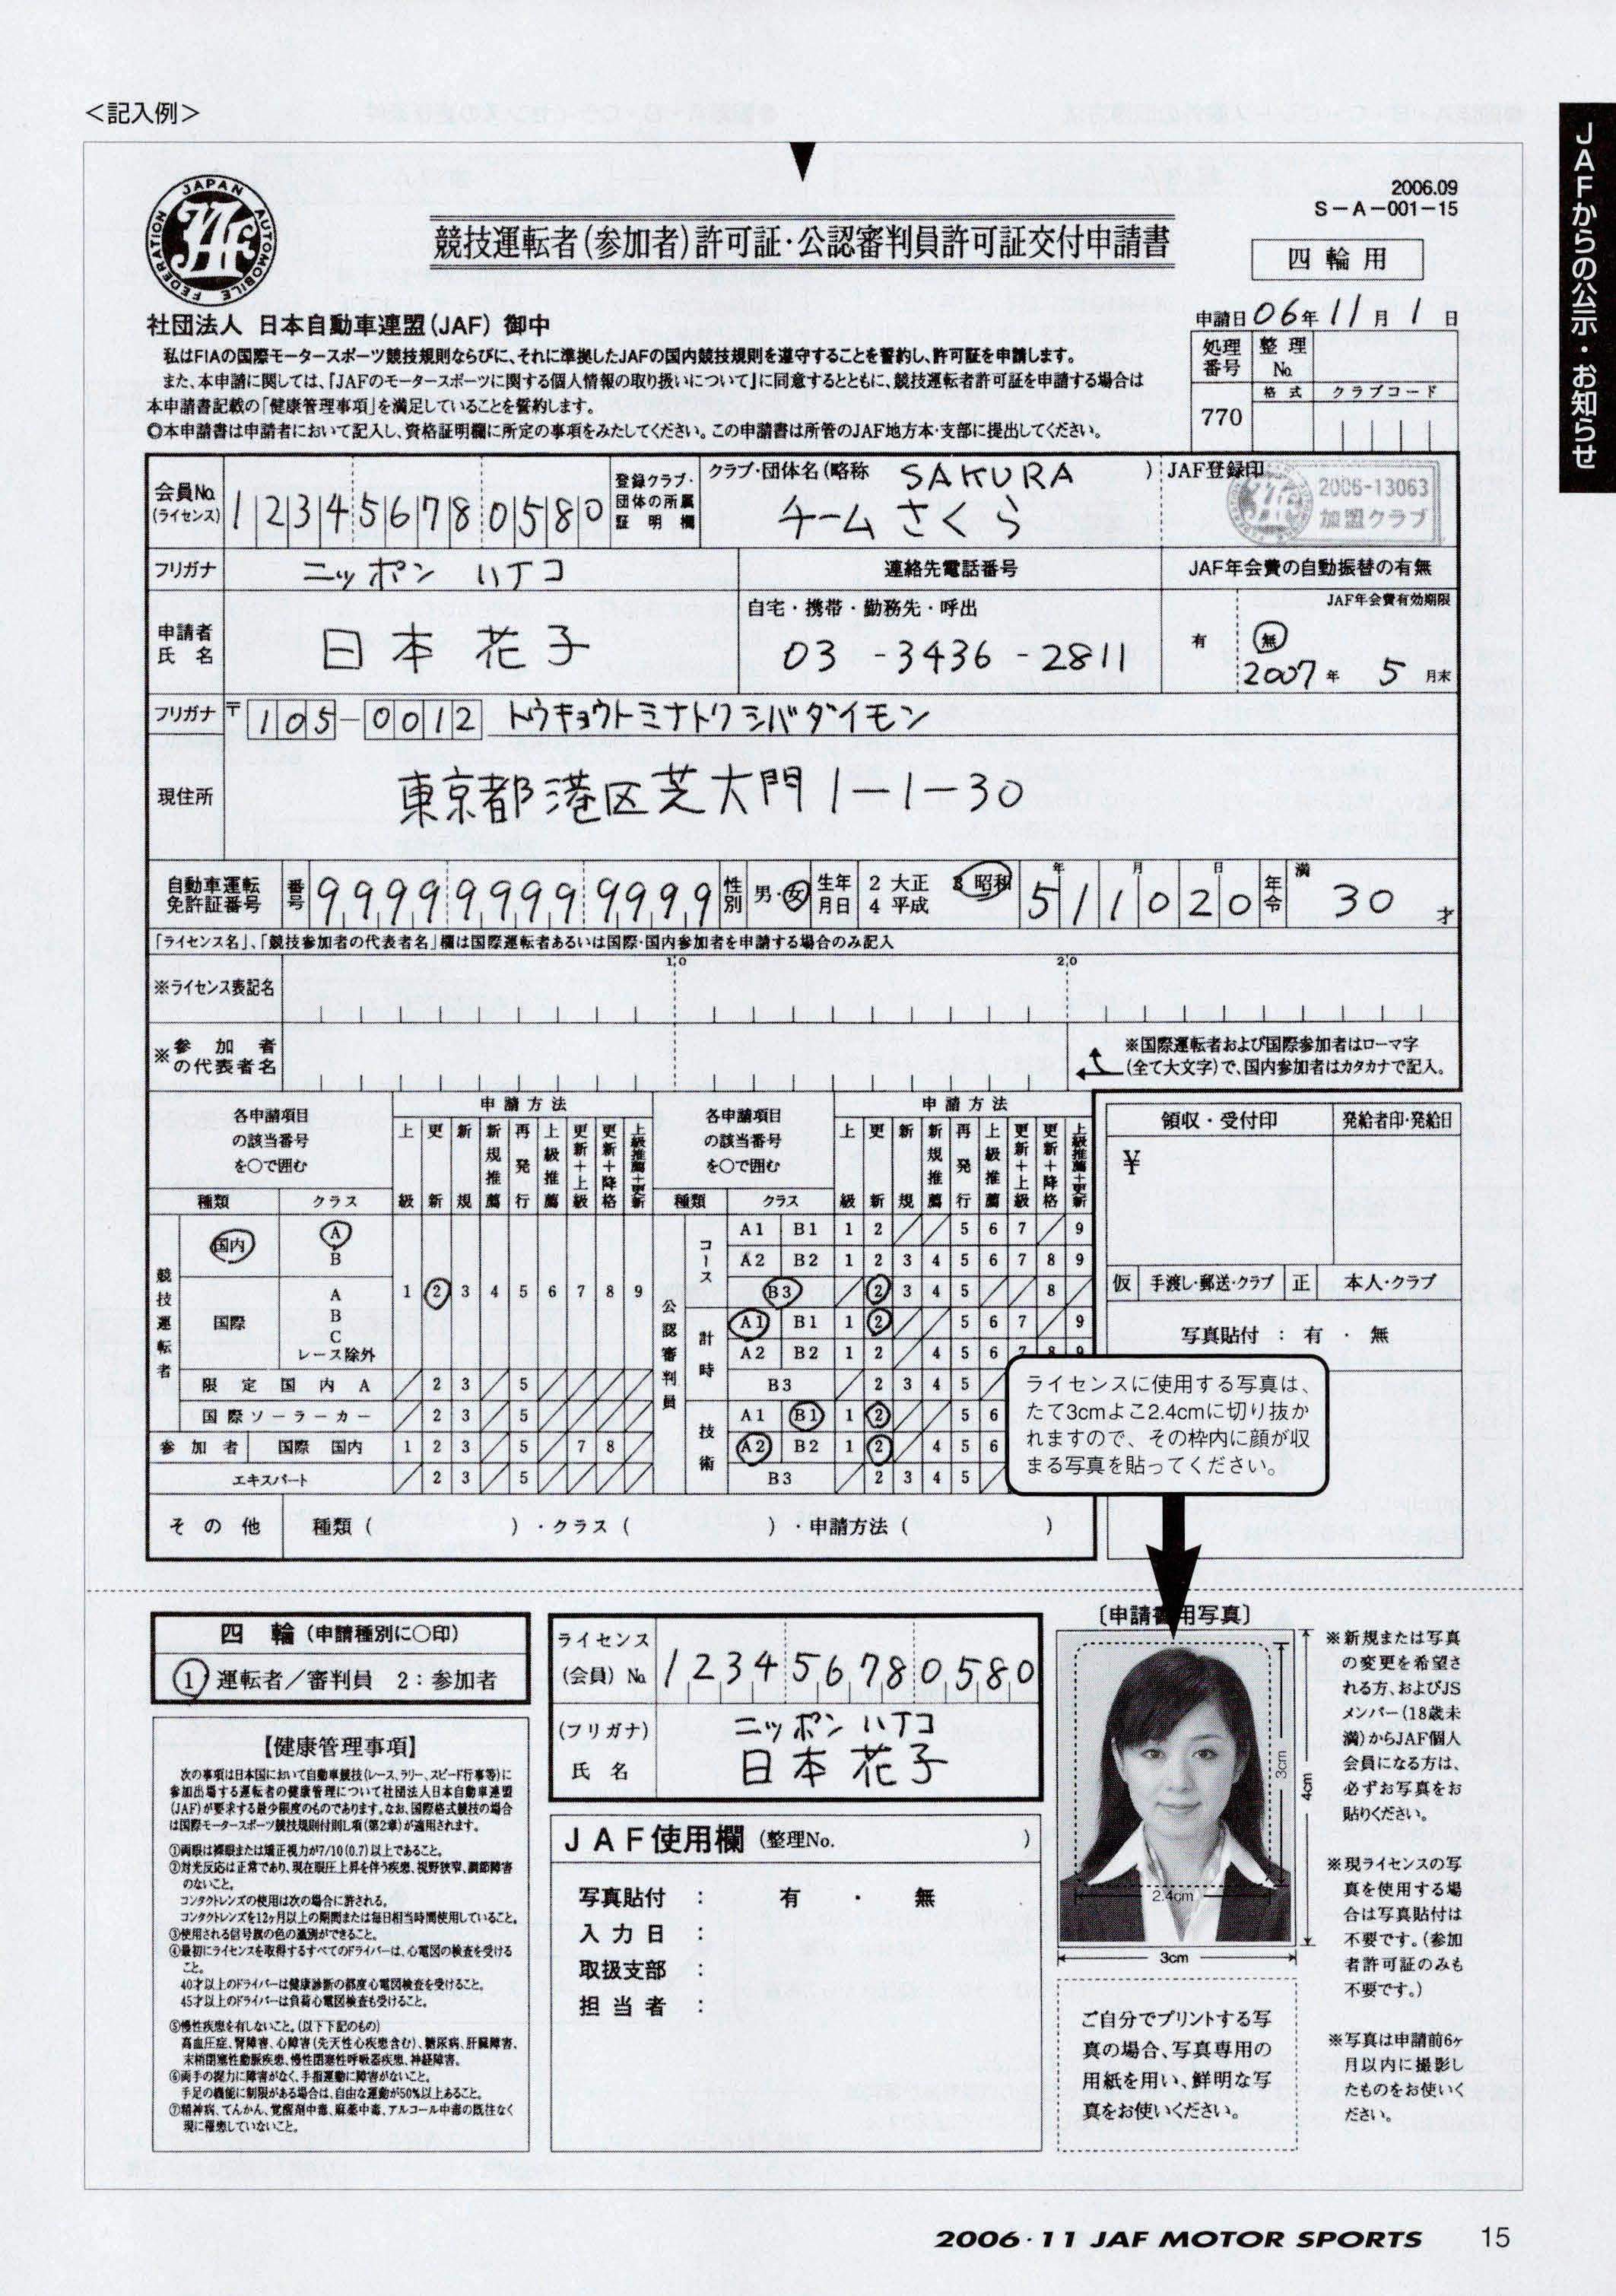 ＜記入例＞
JAFからの公示・お知らせ
JAPAN AUTOMOBILE FEDERATION
JAF
2006.09
S－A－001－15
競技運転者(参加者)許可証・公認審判員許可証交付申請書
四輪用
社団法人 日本自動車連盟(JAF) 御中
申請日 06年 11月 1日
私はFIAの国際モータースポーツ競技規則ならびに、それに準拠したJAFの国内競技規則を遵守することを誓約し、許可証を申請します。
また、本申請に関しては、「JAFのモータースポーツに関する個人情報の取り扱いについて」に同意するとともに、競技運転者許可証を申請する場合は
本申請書記載の「健康管理事項」を満足していることを誓約します。
◎本申請書は申請者において記入し、資格証明欄に所定の事項をみたしてください。この申請書は所管のJAF地方本・支部に提出してください。
処理番号 整理No.
770 格式 クラブコード
会員No.(ライセンス) 123456780580
登録クラブ・団体の所属証明欄
クラブ・団体名(略称 SAKURA )
チームさくら
JAF登録印
2006-13063
加盟クラブ
フリガナ ニッポン ハナコ
連絡先電話番号
JAF年会費の自動振替の有無
申請者氏名 日本 花子
自宅・携帯・勤務先・呼出
03 -3436 -2811
JAF年会費有効期限
有 無
2007年 5月末
フリガナ 〒105-0012 トウキョウトミナトクシバダイモン
現住所 東京都港区芝大門1-1-30
自動車運転免許証番号 番号 999999999999 性別 男・女 生年月日 2 大正 3 昭和 4 平成 年 月 日 511020 年令 満 30才
「ライセンス名」、「競技参加者の代表者名」欄は国際運転者あるいは国際・国内参加者を申請する場合のみ記入
※ライセンス表記名 10 20
※参加者の代表者名
※国際運転者および国際参加者はローマ字
(全て大文字)で、国内参加者はカタカナで記入。
各申請項目の該当番号を○で囲む
申請方法
上級 更新 新規 新規推薦 再発行 上級推薦 更新＋上級 更新＋降格 上級推薦＋更新
種類 クラス
競技運転者
国内 A B
国際 A B C レース除外
1 2 3 4 5 6 7 8 9
限定国内A 2 3 5
国際ソーラーカー 2 3 5
参加者 国際 国内 1 2 3 5 7 8
エキスパート 2 3 5
各申請項目の該当番号を○で囲む
申請方法
上級 更新 新規 新規推薦 再発行 上級推薦 更新＋上級 更新＋降格 上級推薦＋更新
種類 クラス
公認審判員
コース
A1 B1 1 2 5 6 7 9
A2 B2 1 2 3 4 5 6 7 8 9
B3 2 3 4 5 8
計時
A1 B1 1 2 5 6 7 9
A2 B2 1 2 4 5 6 7 8 9
B3 2 3 4 5
技術
A1 B1 1 2 5 6
A2 B2 1 2 4 5 6
B3 2 3 4 5
その他 種類( )・クラス( )・申請方法( )
領収・受付印 発給者印・発給日
¥
仮 手渡し・郵送・クラブ 正 本人・クラブ
写真貼付 : 有 ・ 無
ライセンスに使用する写真は、
たて3cmよこ2.4cmに切り抜か
れますので、その枠内に顔が収
まる写真を貼ってください。
四輪(申請種別に○印)
1 運転者／審判員 2：参加者
【健康管理事項】
次の事項は日本国において自動車競技(レース、ラリー、スピード行事等)に
参加出場する運転者の健康管理について社団法人日本自動車連盟
(JAF)が要求する最少限度のものであります。なお、国際格式競技の場合
は国際モータースポーツ競技規則付則L項(第2章)が適用されます。
①両眼は裸眼または矯正視力が7/10(0.7)以上であること。
②対光反応は正常であり、現在眼圧上昇を伴う疾患、視野狭窄、調節障害
のないこと。
コンタクトレンズの使用は次の場合に許される。
コンタクトレンズを12ヶ月以上の期間または毎日相当時間使用していること。
③使用される信号旗の色の識別ができること。
④最初にライセンスを取得するすべてのドライバーは、心電図の検査を受ける
こと。
40才以上のドライバーは健康診断の都度心電図検査を受けること。
45才以上のドライバーは負荷心電図検査も受けること。
⑤慢性疾患を有しないこと。(以下下記のもの)
高血圧症、腎障害、心障害(先天性心疾患含む)、糖尿病、肝臓障害、
末梢閉塞性動脈疾患、慢性閉塞性呼吸器疾患、神経障害。
⑥両手の握力に障害がなく、手指運動に障害がないこと。
手足の機能に制限がある場合は、自由な運動が50%以上あること。
⑦精神病、てんかん、覚醒剤中毒、麻薬中毒、アルコール中毒の既往なく
現に罹患していないこと。
ライセンス(会員)No. 123456780580
(フリガナ) ニッポン ハナコ
氏名 日本 花子
JAF使用欄 (整理No. )
写真貼付 : 有 ・ 無
入力日 :
取扱支部 :
担当者 :
〔申請書用写真〕
3cm
4cm
2.4cm
3cm
ご自分でプリントする写
真の場合、写真専用の
用紙を用い、鮮明な写
真をお使いください。
※新規または写真
の変更を希望さ
れる方、およびJS
メンバー(18歳未
満)からJAF個人
会員になる方は、
必ずお写真をお
貼りください。
※現ライセンスの写
真を使用する場
合は写真貼付は
不要です。(参加
者許可証のみも
不要です。)
※写真は申請前6ヶ
月以内に撮影し
たものをお使いく
ださい。
2006・11 JAF MOTOR SPORTS 15